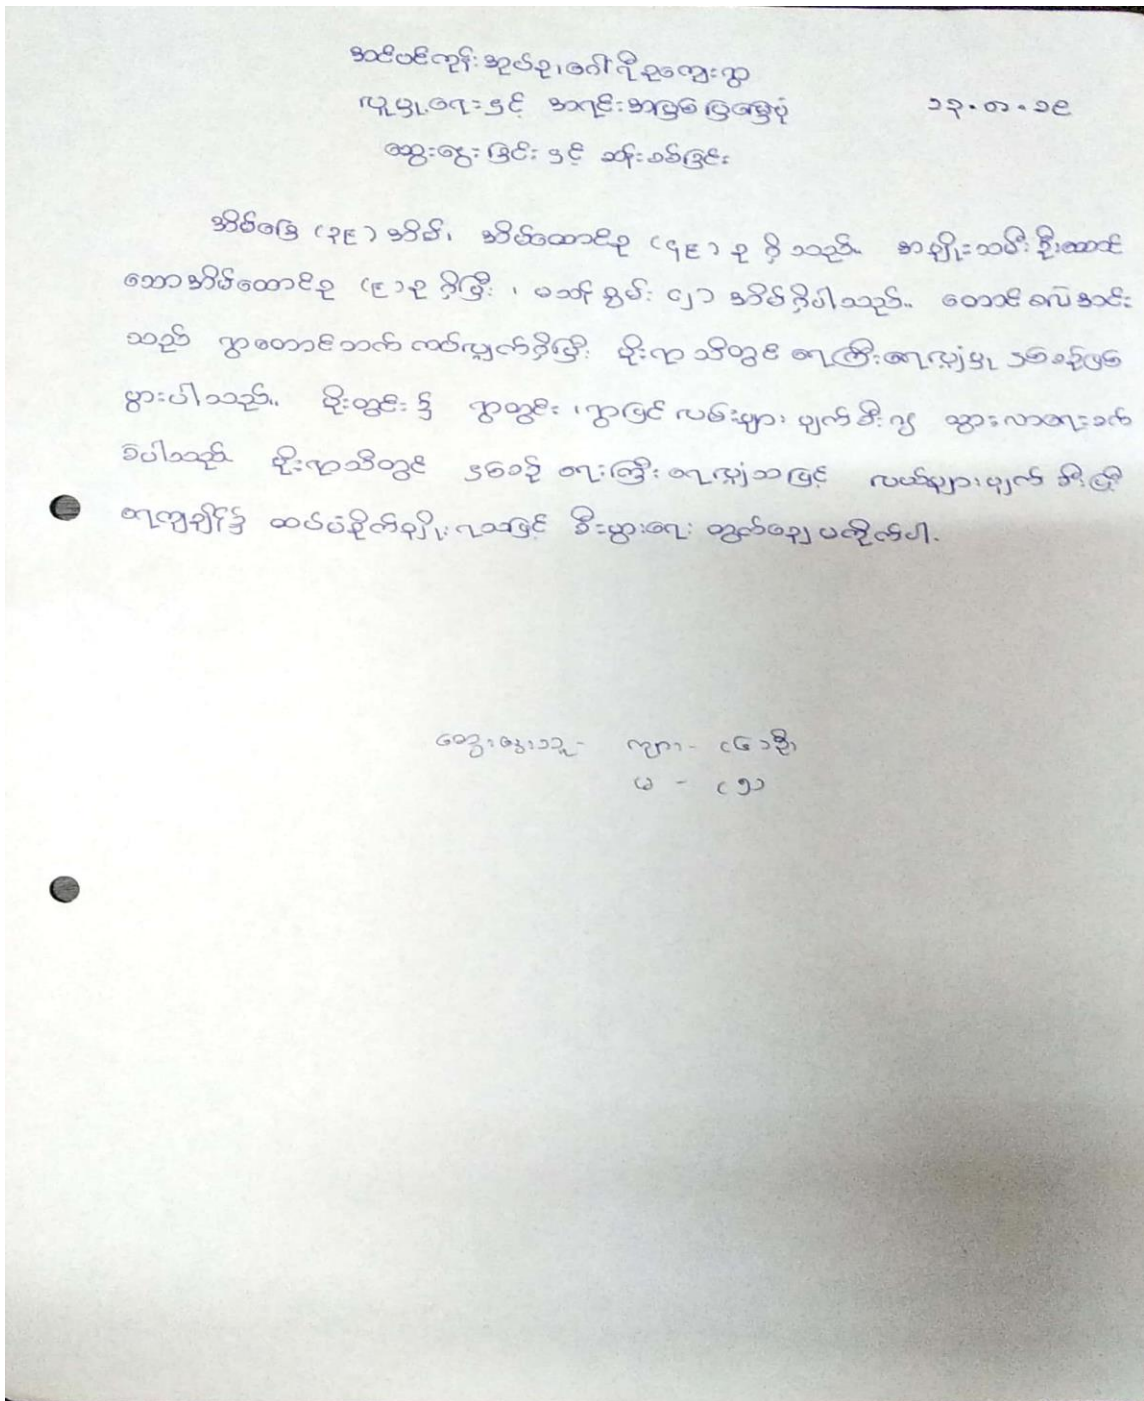 အင်ပင်ကုန်းအုပ်စု၊ ဂေါ်ရီစုကျေးရွာ
လူမှုရေးနှင့် အရင်းအမြစ်ပြမြေပုံ ၁၃.၈.၁၉
ဆွေးနွေးခြင်းနှင့် ဆန်းစစ်ခြင်း
အိမ်ခြေ (၃၉) အိမ်၊ အိမ်ထောင်စု (၄၉) စု ရှိသည်။ အမျိုးသမီးဦးဆောင်
သောအိမ်ထောင်စု (၉) စု ရှိပြီး ၊ မသန်စွမ်း (၂) အိမ်ရှိပါသည်။ တောင်စလင်းချောင်း
သည် ရွာတောင်ဘက် ကပ်လျှက်ရှိပြီး မိုးရာသီတွင် ရေကြီးရေလျှံမှု နှစ်စဉ်ဖြစ်
ပွားပါသည်။ မိုးတွင်း၌ ရွာတွင်း ၊ ရွာပြင် လမ်းများ ပျက်စီး၍ သွားလာရေးခက်
ခဲပါသည်။ မိုးရာသီတွင် နှစ်စဉ် ရေကြီး ရေလျှံသဖြင့် လယ်များပျက်စီးပြီး
ရေကျချိန်၌ ထပ်မံစိုက်ပျိုးရသဖြင့် စီးပွားရေး တွက်ခြေမကိုက်ပါ။
ဆွေးနွေးသူ - ကျား - (၆) ဦး
မ - (၅)